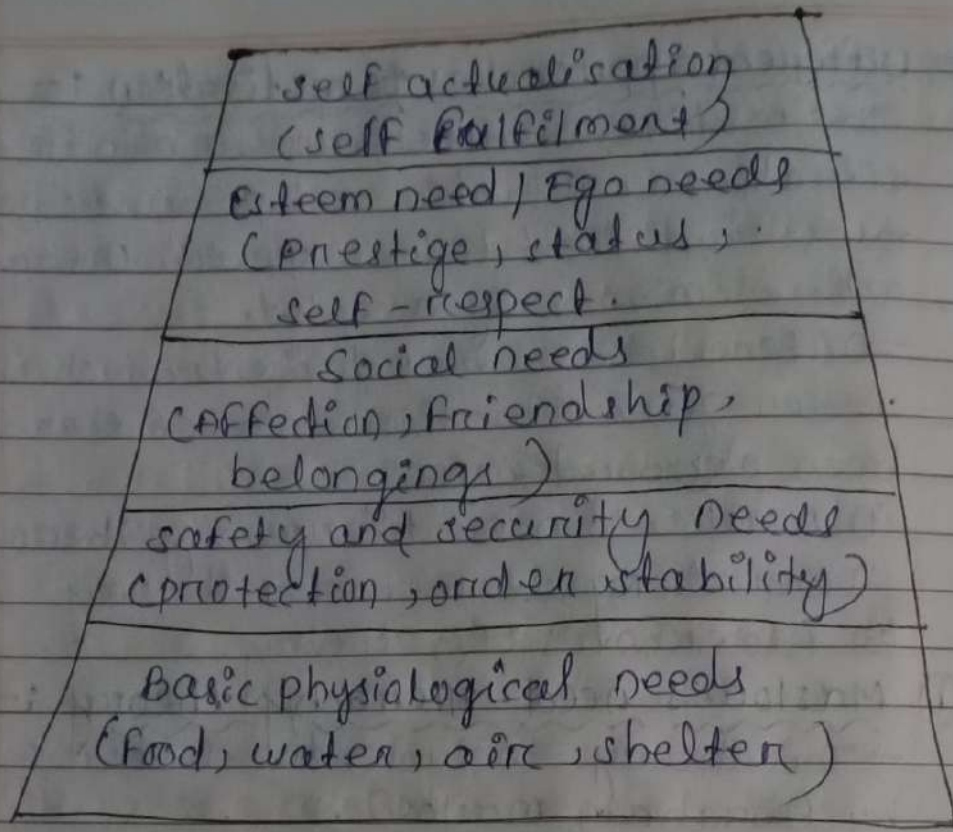 self actualisation
(self fulfilment)
Esteem need / Ego needs
(prestige, status,
self-respect.
Social needs
(Affection, friendship,
belongings)
safety and security needs
(protection, order, stability)
Basic physiological needs
(food, water, air, shelter)